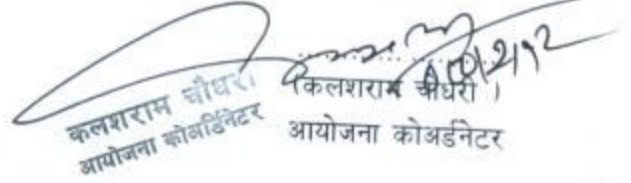 कलशराम चौधरी
आयोजना कोअर्डिनेटर
(कलशराम चौधरी)
आयोजना कोअर्डनेटर